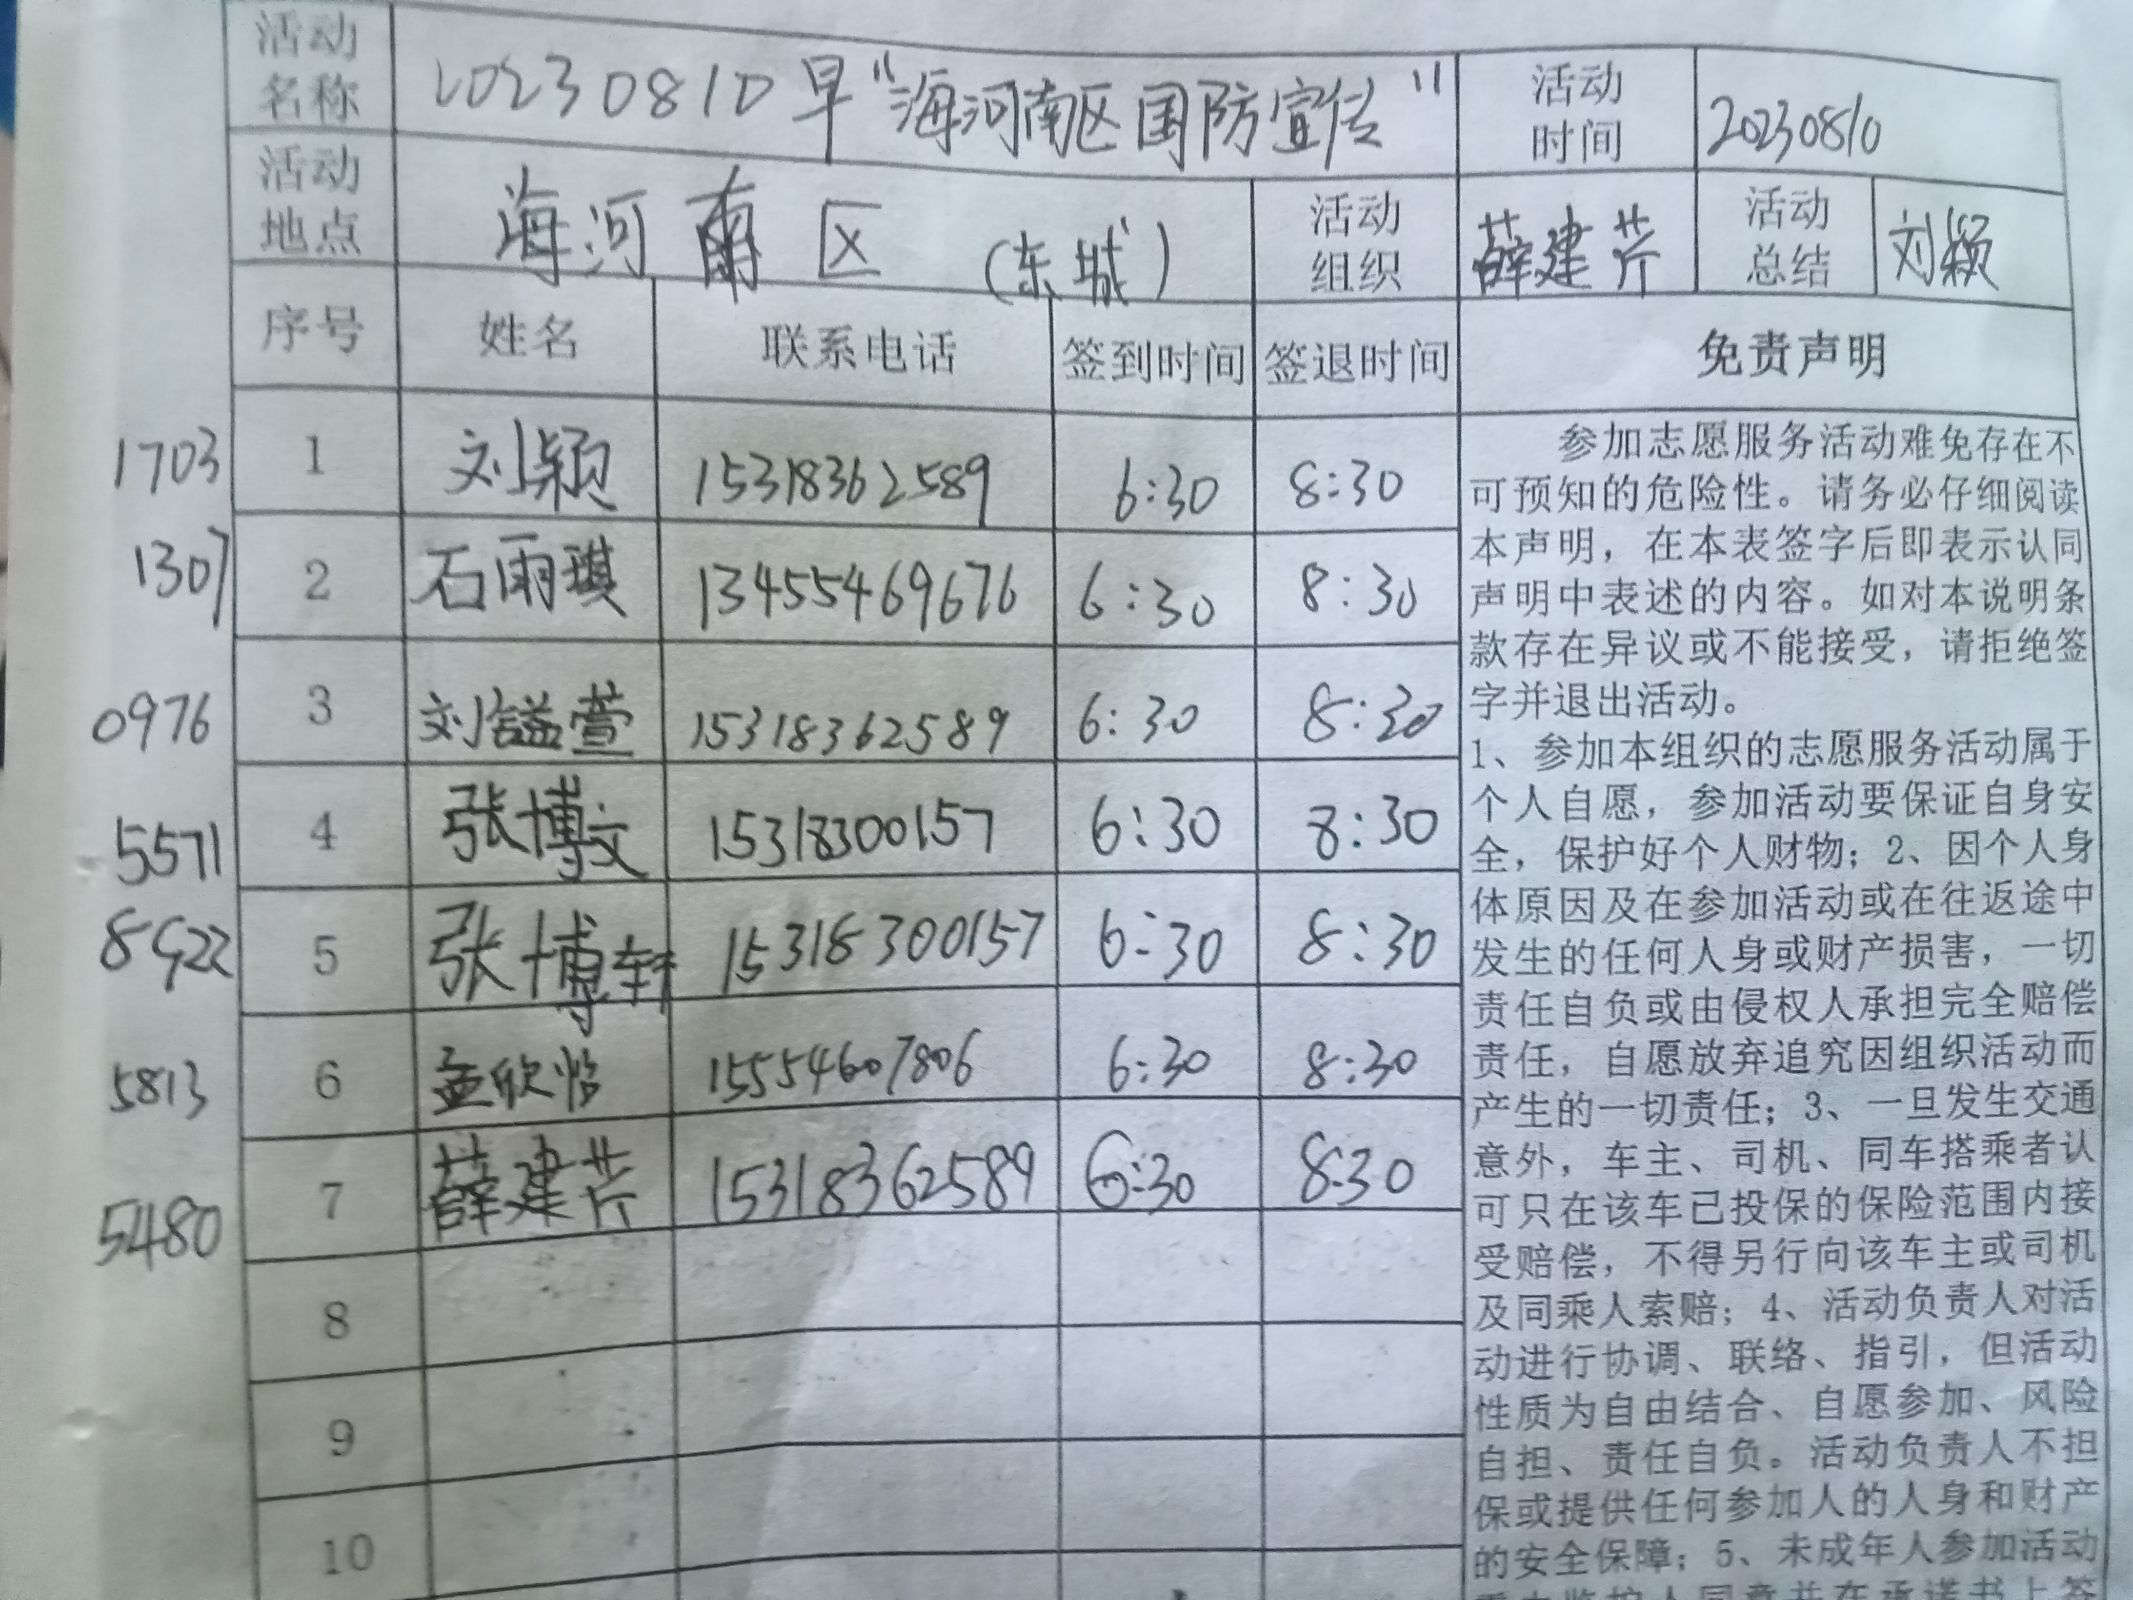 活动名称 20230810早"海河南区国防宣传" 活动时间 20230810
活动地点 海河南区 (东城) 活动组织 薛建芹 活动总结 刘颖
序号 姓名 联系电话 签到时间 签退时间 免责声明
1703 1 刘颖 15318362589 6:30 8:30
1307 2 石雨琪 13455469676 6:30 8:30
0976 3 刘谥萱 15318362589 6:30 8:30
5571 4 张博文 15318300157 6:30 8:30
8922 5 张博轩 15318300157 6:30 8:30
5813 6 孟欣怡 15554607806 6:30 8:30
5480 7 薛建芹 15318362589 6:30 8:30
8
9
10
参加志愿服务活动难免存在不
可预知的危险性。请务必仔细阅读
本声明，在本表签字后即表示认同
声明中表述的内容。如对本说明条
款存在异议或不能接受，请拒绝签
字并退出活动。
1、参加本组织的志愿服务活动属于
个人自愿，参加活动要保证自身安
全，保护好个人财物；2、因个人身
体原因及在参加活动或在往返途中
发生的任何人身或财产损害，一切
责任自负或由侵权人承担完全赔偿
责任，自愿放弃追究因组织活动而
产生的一切责任；3、一旦发生交通
意外，车主、司机、同车搭乘者认
可只在该车已投保的保险范围内接
受赔偿，不得另行向该车主或司机
及同乘人索赔；4、活动负责人对活
动进行协调、联络、指引，但活动
性质为自由结合、自愿参加、风险
自担、责任自负。活动负责人不担
保或提供任何参加人的人身和财产
的安全保障；5、未成年人参加活动